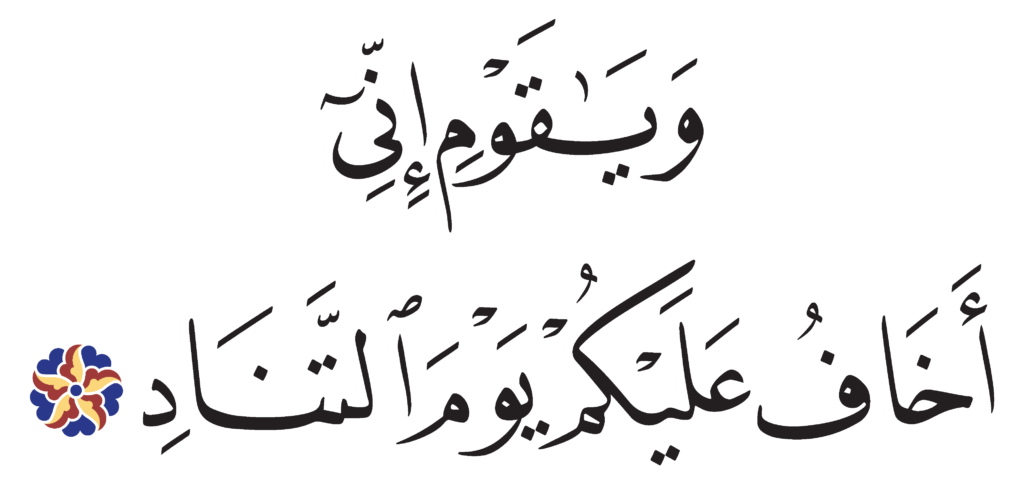 وَيَٰقَوْمِ إِنِّىٓ
أَخَافُ عَلَيْكُمْ يَوْمَ ٱلتَّنَادِ